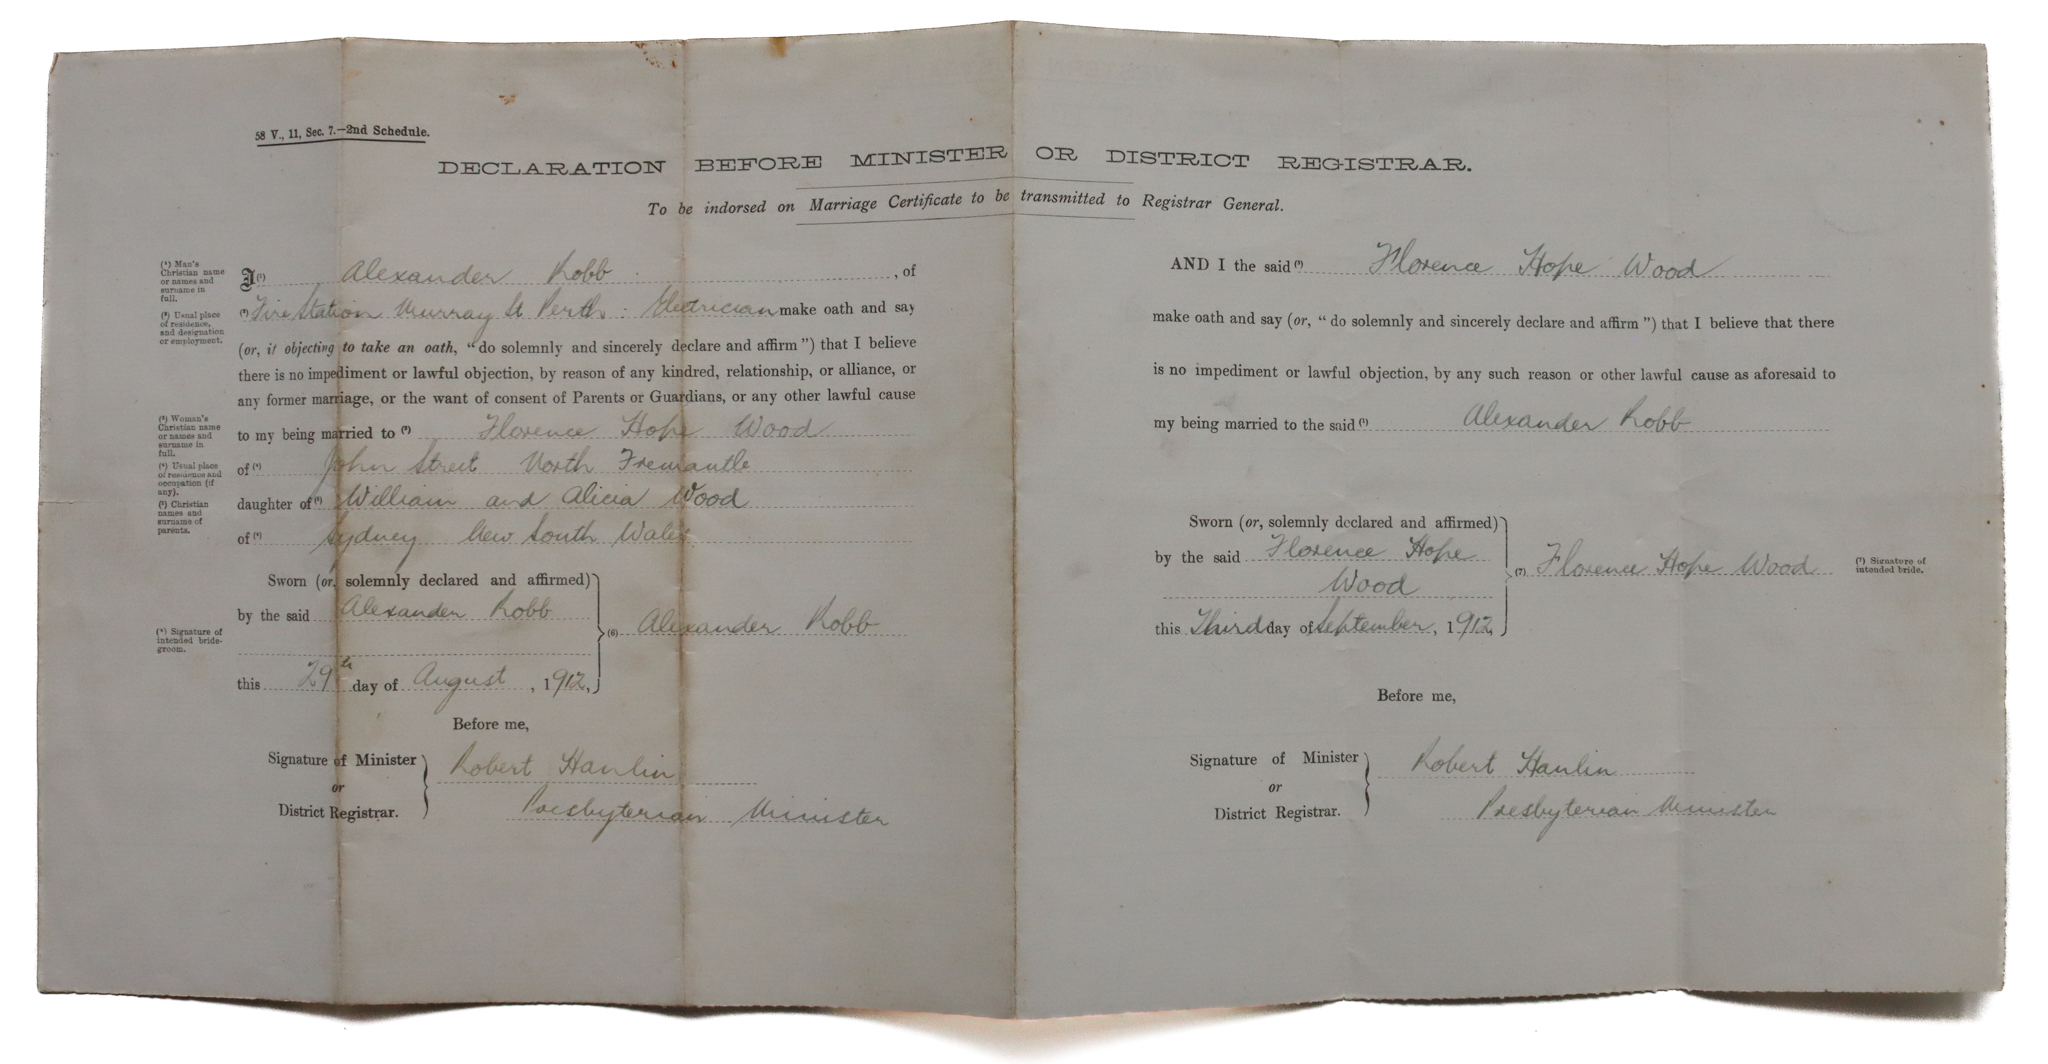 58 V., 11, Sec. 7.—2nd Schedule.
DECLARATION BEFORE MINISTER OR DISTRICT REGISTRAR.
To be indorsed on Marriage Certificate to be transmitted to Registrar General.
(¹) Man's
Christian name
or names and
surname in
full.
(²) Usual place
of residence,
and designation
or employment.
(³) Woman's
Christian name
or names and
surname in
full.
(⁴) Usual place
of residence and
occupation (if
any).
(⁵) Christian
names and
surname of
parents.
(⁶) Signature of
intended bride-
groom.
I (¹) Alexander Robb , of
(²) Fire Station Murray St Perth : Electrician make oath and say
(or, if objecting to take an oath, "do solemnly and sincerely declare and affirm") that I believe
there is no impediment or lawful objection, by reason of any kindred, relationship, or alliance, or
any former marriage, or the want of consent of Parents or Guardians, or any other lawful cause
to my being married to (³) Florence Hope Wood
of (⁴) John Street North Fremantle
daughter of (⁵) William and Alicia Wood
of (⁴) Sydney New South Wales
Sworn (or, solemnly declared and affirmed)
by the said Alexander Robb
(6) Alexander Robb
this 29th day of August , 1912,
Before me,
Signature of Minister
or
District Registrar.
Robert Hanlin
Presbyterian Minister
AND I the said (³) Florence Hope Wood
make oath and say (or, "do solemnly and sincerely declare and affirm") that I believe that there
is no impediment or lawful objection, by any such reason or other lawful cause as aforesaid to
my being married to the said (¹) Alexander Robb
Sworn (or, solemnly declared and affirmed)
by the said Florence Hope
Wood
(7) Florence Hope Wood
(⁷) Signature of
intended bride.
this Third day of September, 1912,
Before me,
Signature of Minister
or
District Registrar.
Robert Hanlin
Presbyterian Minister